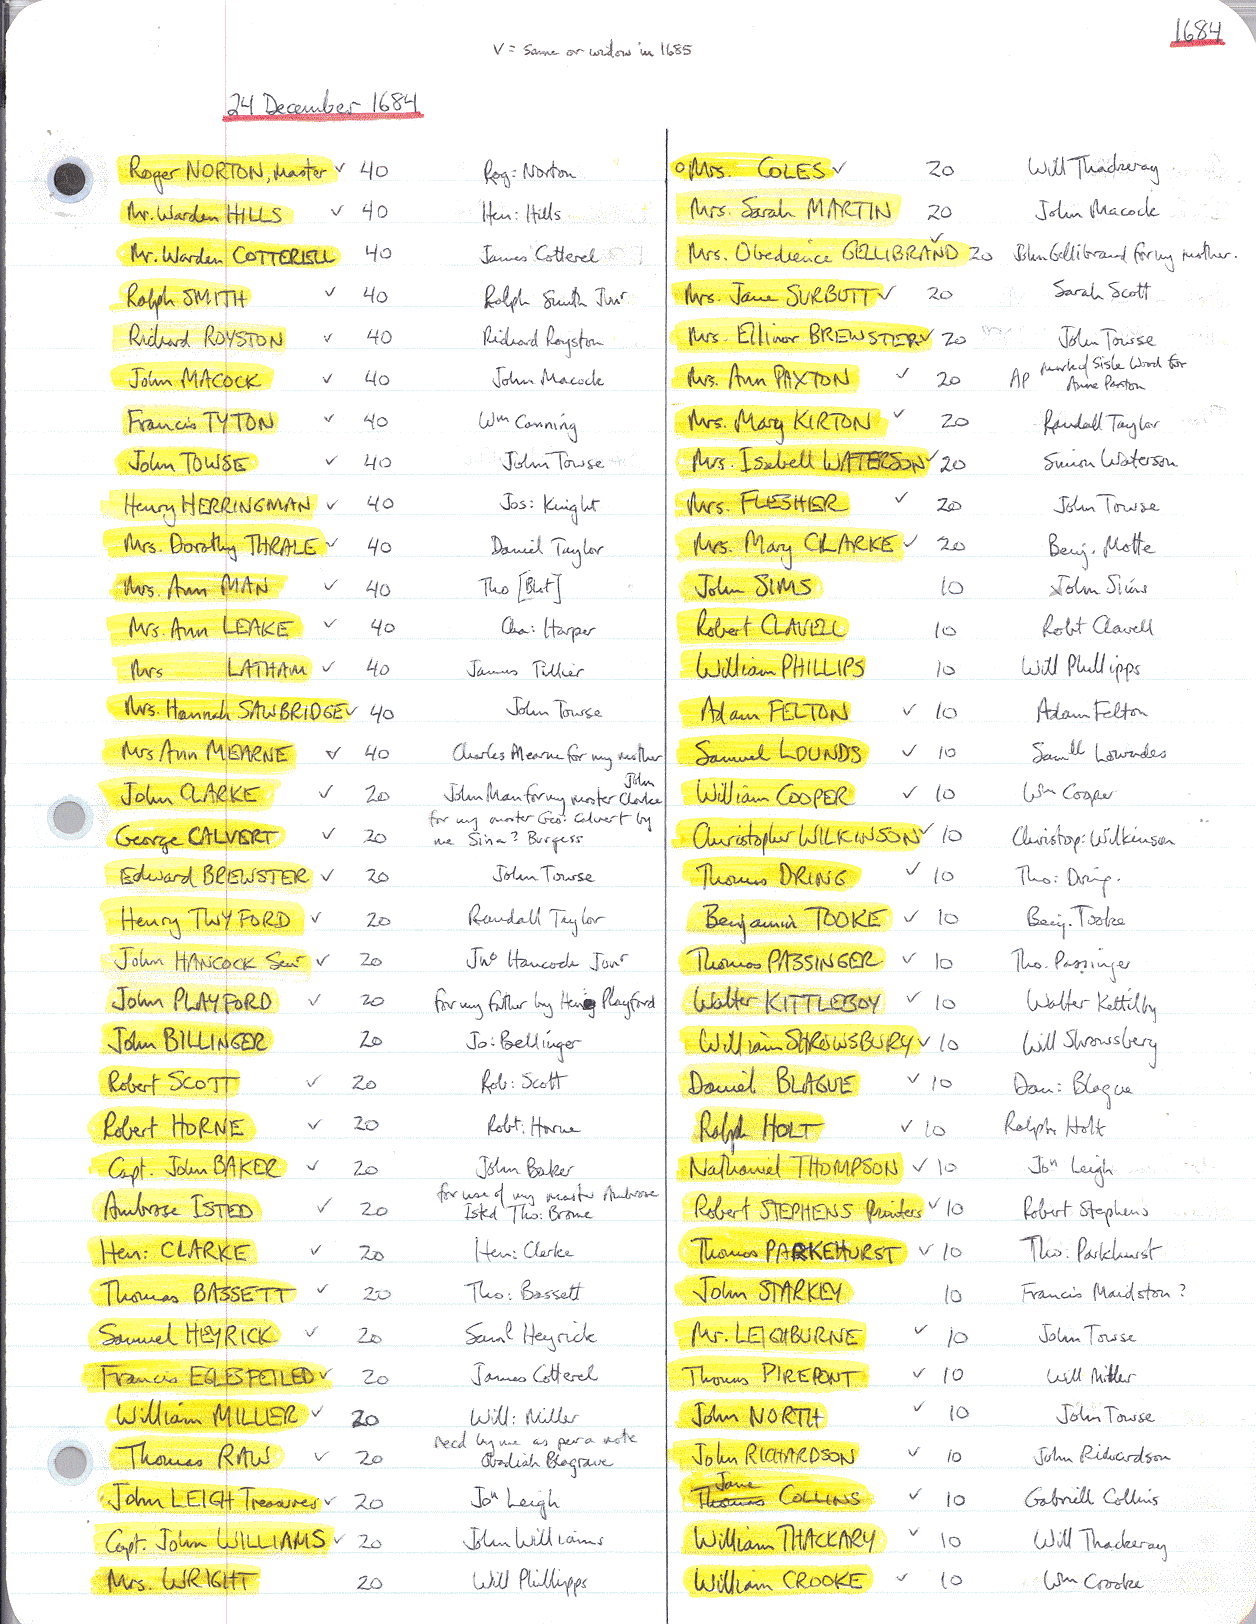 1684
V = same or widow in 1685
24 December 1684
Roger NORTON, Master ✓ 40 Rog: Norton
Mr. Warden HILLS ✓ 40 Hen: Hills
Mr. Warden COTTERELL 40 James Cotterel
Ralph SMITH ✓ 40 Ralph Smith Junr
Richard ROYSTON ✓ 40 Richard Royston
John MACOCK ✓ 40 John Macock
Francis TYTON ✓ 40 Wm Canning
John TOWSE ✓ 40 John Towse
Henry HERRINGMAN ✓ 40 Jos: Knight
Mrs. Dorothy THRALE ✓ 40 Daniel Taylor
Mrs. Ann MAN ✓ 40 Tho [Blot]
Mrs. Ann LEAKE ✓ 40 Cha: Harper
Mrs LATHAM ✓ 40 James Tillier
Mrs. Hannah SAWBRIDGE ✓ 40 John Towse
Mrs Ann MEARNE ✓ 40 Charles Mearne for my mother
John CLARKE ✓ 20 John Man for my master John Clarke
George CALVERT ✓ 20 for my master Geo: Calvert by
me Sina? Burgess
Edward BREWSTER ✓ 20 John Towse
Henry TWYFORD ✓ 20 Randall Taylor
John HANCOCK Senr ✓ 20 Jno Hancock Junr
John PLAYFORD ✓ 20 for my father by Henry Playford
John BILLINGER 20 Jo: Bellinger
Robert SCOTT ✓ 20 Rob: Scott
Robert HORNE ✓ 20 Robt: Horne
Capt. John BAKER ✓ 20 John Baker
Ambrose ISTED ✓ 20 for use of my master Ambrose
Isted Tho: Brome
Hen: CLARKE ✓ 20 Hen: Clerke
Thomas BASSETT ✓ 20 Tho: Bassett
Samuel HEYRICK ✓ 20 Saml Heyrick
Francis EGLESFEILED ✓ 20 James Cotterel
William MILLER ✓ 20 Will: Miller
Thomas RAW ✓ 20 recd by me as per a note
Obadiah Blagrave
John LEIGH Treasurer ✓ 20 Jon Leigh
Capt. John WILLIAMS ✓ 20 John Williams
Mrs. WRIGHT 20 Will Phillipps
Mrs. COLES ✓ 20 Will Thackeray
Mrs. Sarah MARTIN 20 John Macock
Mrs. Obedience GELLIBRAND ✓ 20 John Gellibrand for my mother.
Mrs. Jane SURBUTT ✓ 20 Sarah Scott
Mrs. Ellinor BREWSTER ✓ 20 John Towse
Mrs. Ann PAXTON ✓ 20 AP marked Siske Word for
Anne Paxton
Mrs. Mary KIRTON ✓ 20 Randall Taylor
Mrs. Isabell WATERSON ✓ 20 Simon Waterson
Mrs. FLESHER ✓ 20 John Towse
Mrs. Mary CLARKE ✓ 20 Benj. Motte
John SIMS 10 John Sims
Robert CLAVELL 10 Robt Clavell
William PHILLIPS 10 Will Phillipps
Adam FELTON ✓ 10 Adam Felton
Samuel LOUNDS ✓ 10 Samll Lowndes
William COOPER ✓ 10 Wm Cooper
Christopher WILKINSON ✓ 10 Christop: Wilkinson
Thomas DRING ✓ 10 Tho: Dring.
Benjamin TOOKE ✓ 10 Benj. Tooke
Thomas PASSINGER ✓ 10 Tho. Passinger
Walter KITTLEBOY ✓ 10 Walter Kettilby
William SHROWSBURY ✓ 10 Will Shrowsbery
Daniel BLAGUE ✓ 10 Dan: Blague
Ralph HOLT ✓ 10 Ralph Holt
Nathaniel THOMPSON ✓ 10 Jon Leigh
Robert STEPHENS Printers ✓ 10 Robert Stephens
Thomas PARKEHURST ✓ 10 Tho: Parkhurst
John STARKEY 10 Francis Maidston?
Mr. LEIGHBURNE ✓ 10 John Towse
Thomas PIREPONT ✓ 10 Will Miller
John NORTH ✓ 10 John Towse
John RICHARDSON ✓ 10 John Richardson
Thomas Jane COLLINS ✓ 10 Gabriell Collins
William THACKARY ✓ 10 Will Thackeray
William CROOKE ✓ 10 Wm Crooke